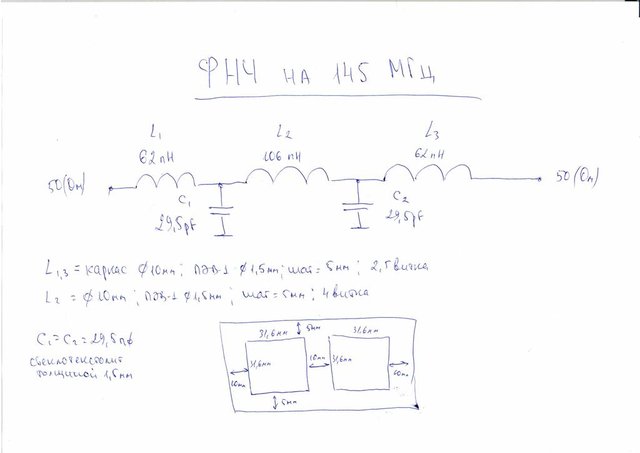 ФНЧ на 145 МГц
L₁ L₂ L₃
62nH 106nH 62nH
50(Ом) 50(Ом)
C₁ C₂
29,5pf 29,5pf
L₁,₃ = каркас ϕ10мм; ПЭВ-1 ϕ1,5мм; шаг = 5мм; 2,5 витка
L₂ = ϕ10мм; ПЭВ-1 ϕ1,5мм; шаг = 5мм; 4 витка
C₁ = C₂ = 29,5пф
Стеклотекстолит
толщиной 1,5мм
31,6мм 5мм 31,6мм
31,6мм 10мм 31,6мм
10мм 10мм
5мм